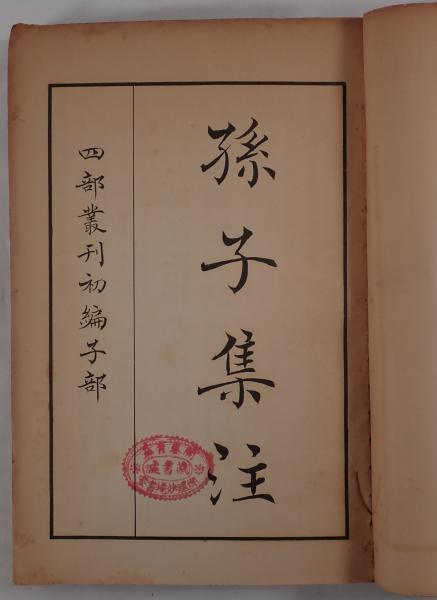 孫子集注
四部叢刊初編子部
藏書